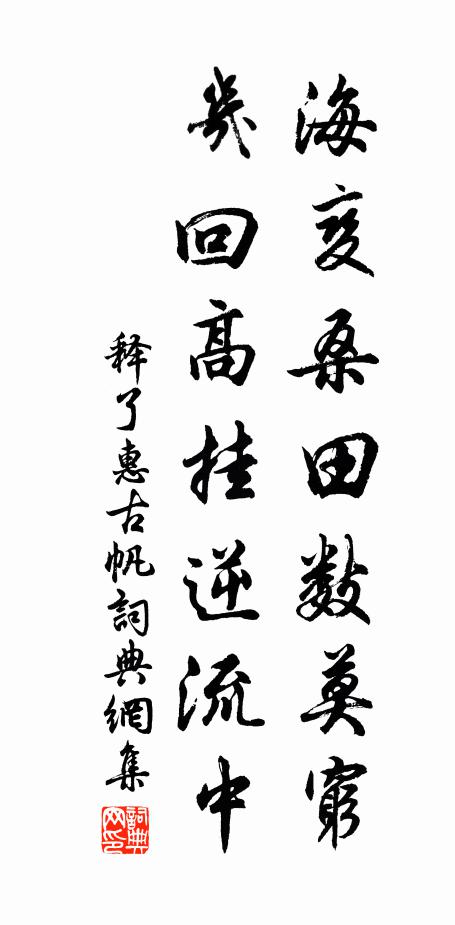 海变桑田数莫窮
幾回高挂逆流中
释了惠古帆詞典網集
詞典网印